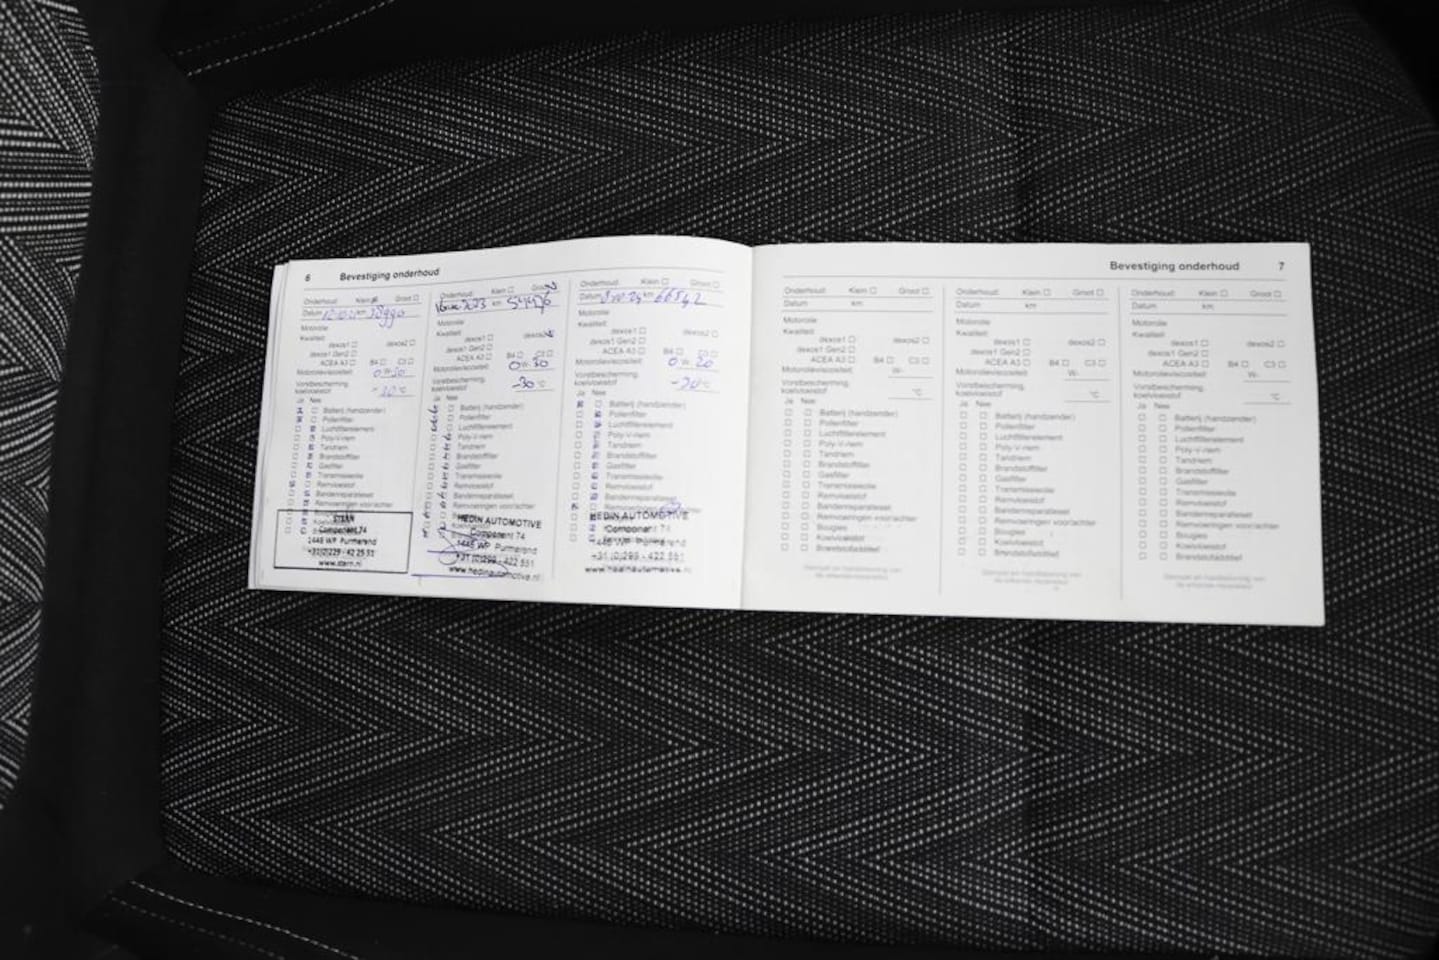 6 Bevestiging onderhoud
Onderhoud: Klein Groot
Datum km
Motorolie
Kwaliteit:
dexos1 dexos2
dexos1 Gen2
ACEA A3 B4 C3
Motorolieviscositeit: 0W-30
Vorstbescherming,
koelvloeistof
Ja Nee
Batterij (handzender)
Pollenfilter
Luchtfilterelement
Poly-V-riem
Tandriem
Brandstoffilter
Gasfilter
Transmissieolie
Remvloeistof
Bandenreparatieset
Remvoeringen voor/achter
STERN
Component 74
1446 WP Purmerend
www.stern.nl
Onderhoud: Klein Groot
km
dexos1 dexos2
dexos1 Gen2
ACEA A3 B4 C3
Motorolieviscositeit: 0W-30
Vorstbescherming,
koelvloeistof -30 °C
Ja Nee
Batterij (handzender)
Pollenfilter
Luchtfilterelement
Poly-V-riem
Tandriem
Brandstoffilter
Gasfilter
Transmissieolie
Remvloeistof
Bandenreparatieset
Remvoeringen voor/achter
HEDIN AUTOMOTIVE
Component 74
1446 WP Purmerend
+31 (0)299 - 422 551
www.hedinautomotive.nl
Onderhoud: Klein Groot
Datum km 66542
Motorolie
Kwaliteit:
dexos1 dexos2
dexos1 Gen2
ACEA A3 B4 C3
Motorolieviscositeit: 0W-20
Vorstbescherming,
koelvloeistof °C
Ja Nee
Batterij (handzender)
Pollenfilter
Luchtfilterelement
Poly-V-riem
Tandriem
Brandstoffilter
Gasfilter
Transmissieolie
Remvloeistof
Bandenreparatieset
HEDIN AUTOMOTIVE
Component 74
1446 WP Purmerend
+31 (0)299 - 422 551
www.hedinautomotive.nl
Bevestiging onderhoud 7
Onderhoud: Klein Groot
Datum km
Motorolie
Kwaliteit:
dexos1 dexos2
dexos1 Gen2
ACEA A3 B4 C3
Motorolieviscositeit: W-
Vorstbescherming,
koelvloeistof °C
Ja Nee
Batterij (handzender)
Pollenfilter
Luchtfilterelement
Poly-V-riem
Tandriem
Brandstoffilter
Gasfilter
Transmissieolie
Remvloeistof
Bandenreparatieset
Remvoeringen voor/achter
Bougies
Koelvloeistof
Brandstofadditief
Onderhoud: Klein Groot
Datum km
Motorolie
Kwaliteit:
dexos1 dexos2
dexos1 Gen2
ACEA A3 B4 C3
Motorolieviscositeit: W-
Vorstbescherming,
koelvloeistof °C
Ja Nee
Batterij (handzender)
Pollenfilter
Luchtfilterelement
Poly-V-riem
Tandriem
Brandstoffilter
Gasfilter
Transmissieolie
Remvloeistof
Bandenreparatieset
Remvoeringen voor/achter
Bougies
Koelvloeistof
Brandstofadditief
Onderhoud: Klein Groot
Datum km
Motorolie
Kwaliteit:
dexos1 dexos2
dexos1 Gen2
ACEA A3 B4 C3
Motorolieviscositeit: W-
Vorstbescherming,
koelvloeistof °C
Ja Nee
Batterij (handzender)
Pollenfilter
Luchtfilterelement
Poly-V-riem
Tandriem
Brandstoffilter
Gasfilter
Transmissieolie
Remvloeistof
Bandenreparatieset
Remvoeringen voor/achter
Bougies
Koelvloeistof
Brandstofadditief